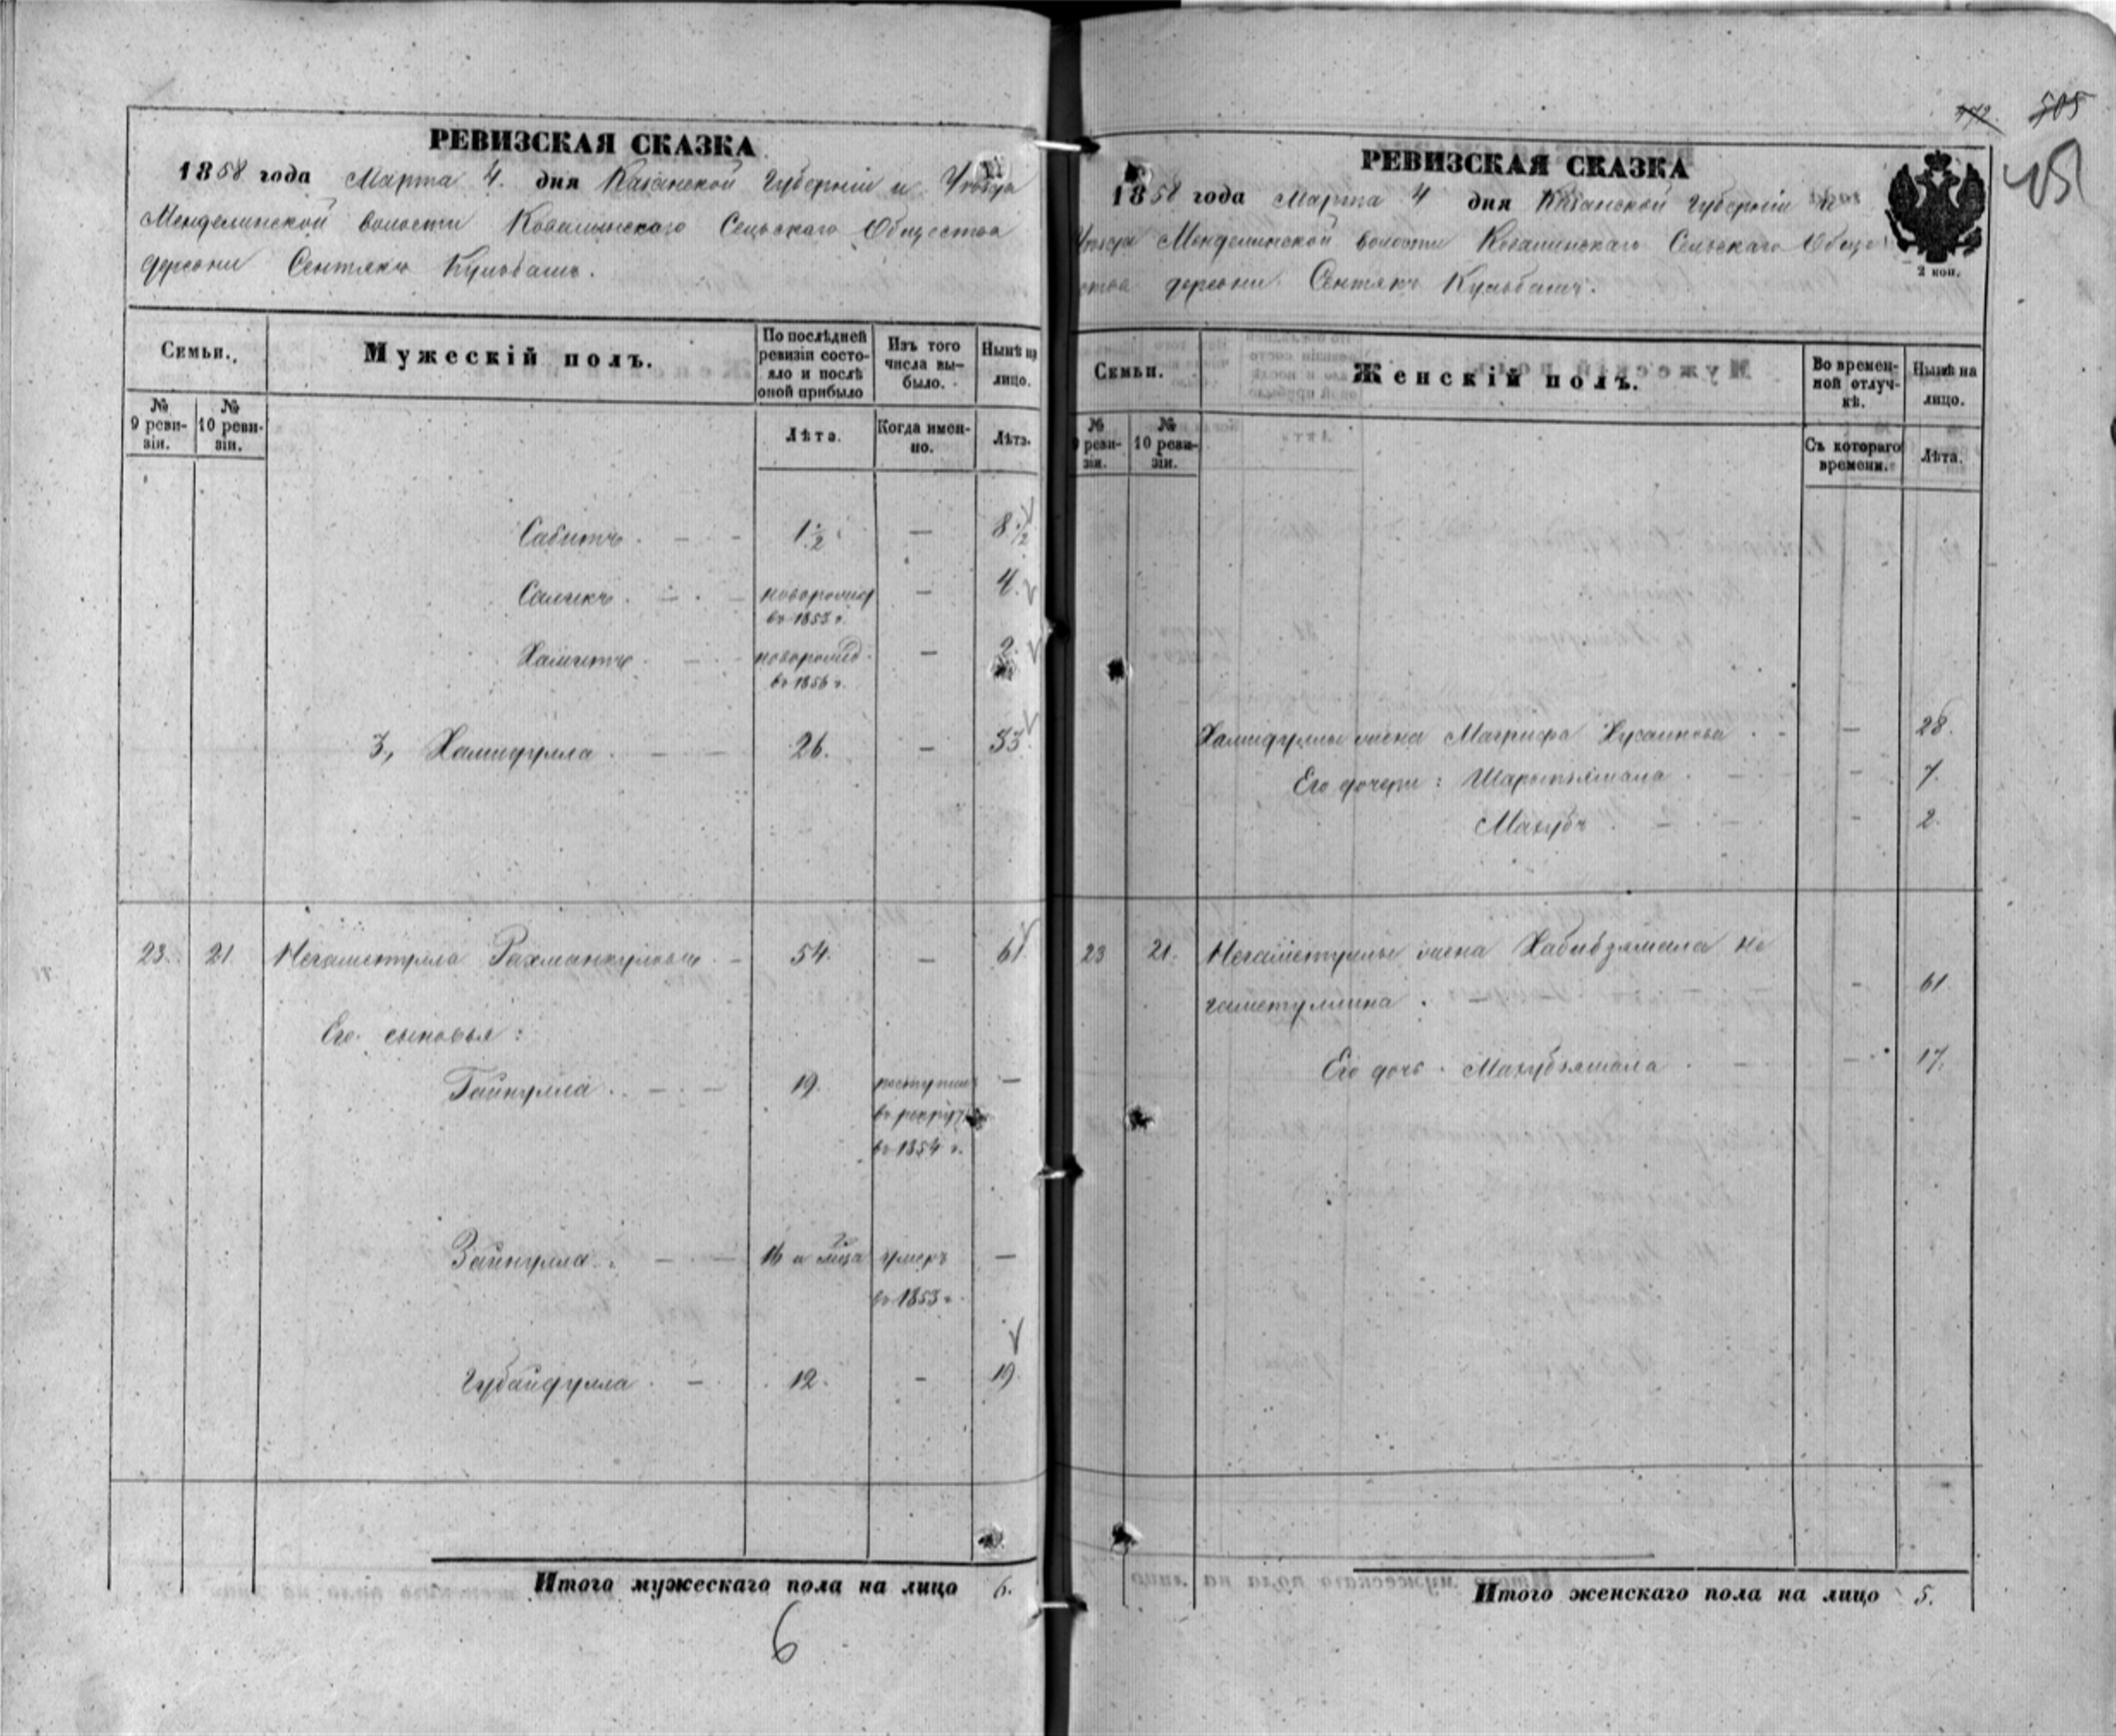 РЕВИЗСКАЯ СКАЗКА
1858 года Марта 4. дня Казанской Губерніи и Уѣзда
Менделинской волости Ковалинскаго Сельскаго Общества
деревни Сентякъ Кульбашъ.
Семьи.
Мужескій полъ.
По послѣдней ревизіи состояло и послѣ оной прибыло
Изъ того числа выбыло.
Нынѣ на лицо.
№ 9 ревизіи.
№ 10 ревизіи.
Лѣта.
Когда именно.
Лѣта.
Сабитъ. - - 1 1/2 — 8 1/2
Саликъ. - - новорожд — 4.
въ 1853 г.
Хамитъ. - - новорожд. — 2.
въ 1856 г.
3, Хамидулла. - - 26. — 33.
23. 21 Негаметулла Рахманкуловъ. - 54. — 61
Его сыновья:
Гайнулла. - - 19. поступилъ —
въ рекруты
въ 1854 г.
Зайнулла. - - 16 а лица умеръ —
въ 1853 г.
Губайдулла. - 12. - 19.
Итого мужескаго пола на лицо 6.
6
505
РЕВИЗСКАЯ СКАЗКА
1858 года Марта 4 дня Казанской Губерніи и
Уѣзда Менделинской волости Ковалинскаго Сельскаго Обще
ства деревни Сентякъ Кульбашъ.
2 коп.
Семьи.
Женскій полъ.
Во временной отлучкѣ.
Нынѣ на лицо.
№ 9 ревизіи.
№ 10 ревизіи.
Съ котораго времени.
Лѣта.
Хамидуллы жена Магрифа Хусаинова. - — 28.
Его дочери: - - 7.
Махубъ. - - - 2.
23 21. Негаметуллы жена Хабибзямала Не
гаметуллина. - - 61
Его дочь. Махубзямала. - — 17.
Итого женскаго пола на лицо 5.